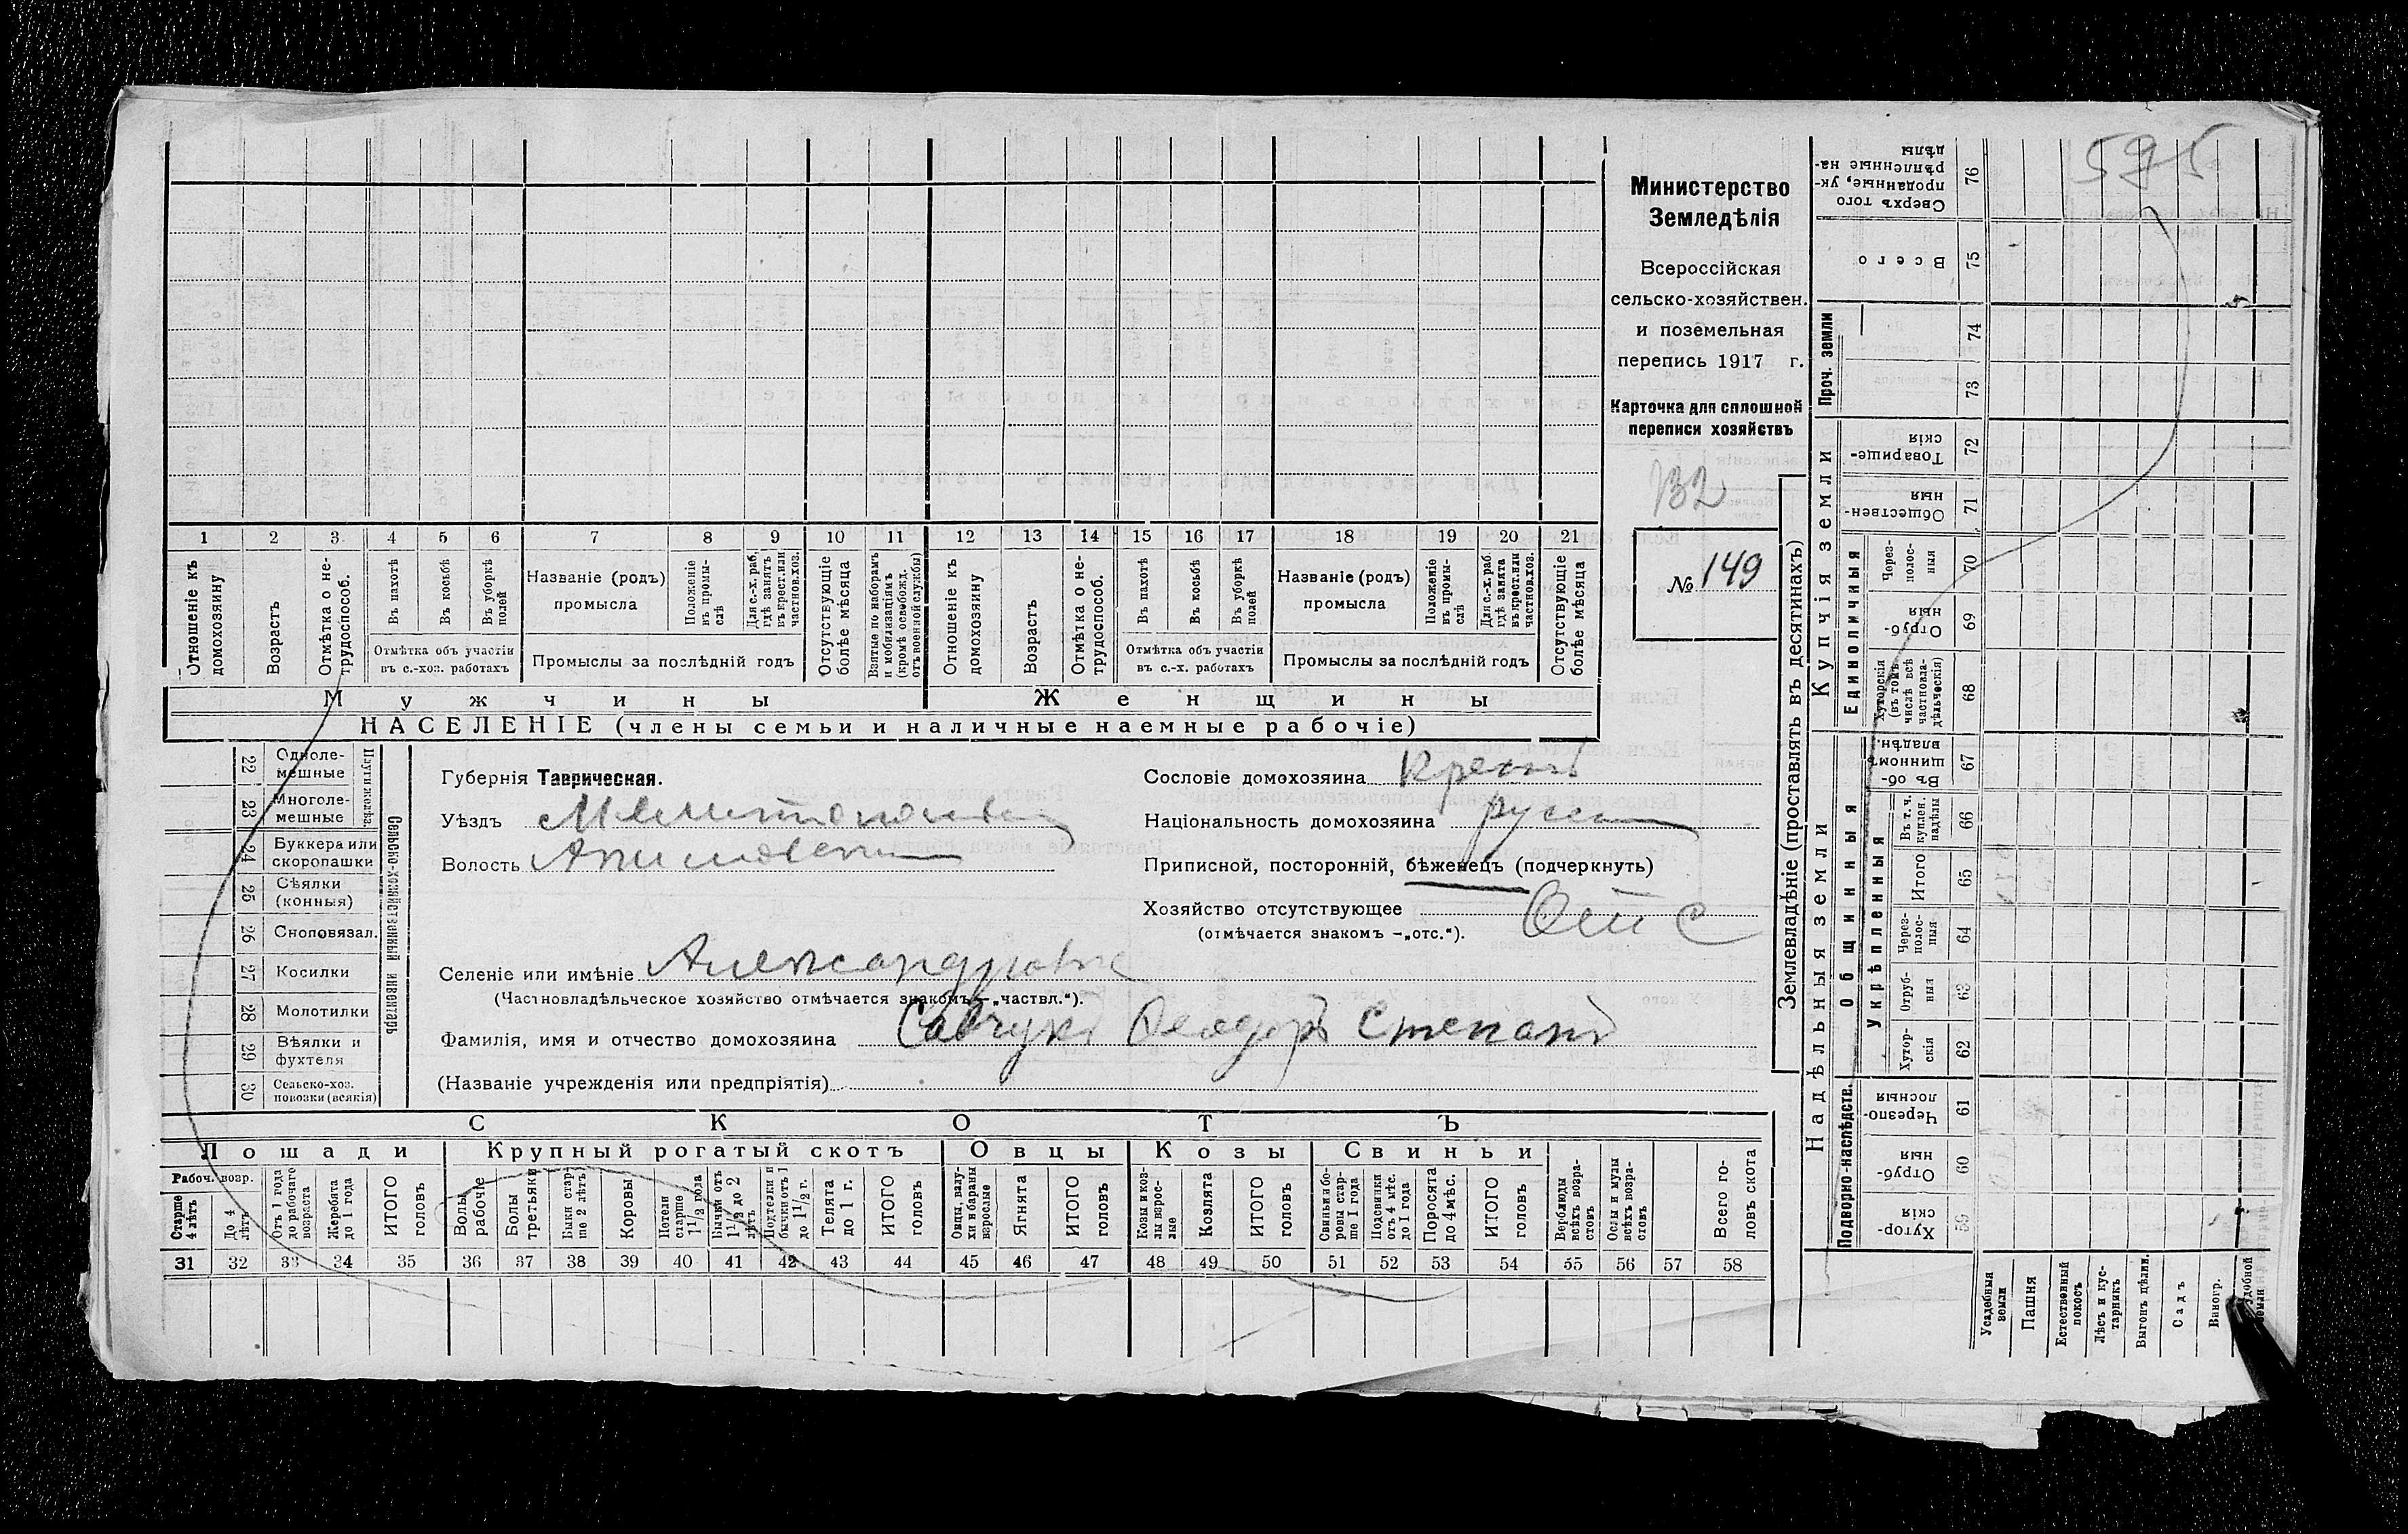 595
Министерство
Земледѣлія
Всероссійская
сельско-хозяйствен.
и поземельная
перепись 1917 г.
Карточка для сплошной
переписи хозяйствъ
132
№ 149
1 2 3 4 5 6 7 8 9 10 11 12 13 14 15 16 17 18 19 20 21
Отношеніе къ домохозяину
Возрастъ
Отмѣтка о не-трудоспособ.
Въ пахотѣ
Въ косьбѣ
Въ уборкѣ полей
Отмѣтка объ участіи
въ с.-хоз. работахъ
Названіе (родъ)
промысла
Положеніе въ промы-слѣ
Для с.-х. раб. гдѣ занятъ въ крест. или частнов. хоз.
Промыслы за послѣдній годъ
Отсутствующіе болѣе мѣсяца
Взятые по наборамъ и мобилизаціямъ (кромѣ освобожд. отъ военной службы)
Отношеніе къ домохозяину
Возрастъ
Отмѣтка о не-трудоспособ.
Въ пахотѣ
Въ косьбѣ
Въ уборкѣ полей
Отмѣтка объ участіи
въ с.-х. работахъ
Названіе (родъ)
промысла
Положеніе въ промы-слѣ
Для с.-х. раб. гдѣ занята въ крест. или частнов. хоз.
Промыслы за послѣдній годъ
Отсутствующіе болѣе мѣсяца
Мужчины Женщины
НАСЕЛЕНІЕ (члены семьи и наличные наемные рабочіе)
Сельско-хозяйственный инвентарь
22 Одноле-мешные
23 Многоле-мешные
24 Буккера или скоропашки
25 Сѣялки (конныя)
26 Сноповязал.
27 Косилки
28 Молотилки
29 Вѣялки и фухтеля
30 Сельско-хоз. повозки (всякія)
Губернія Таврическая.
Уѣздъ
Волость
Селеніе или имѣніе
(Частновладѣльческое хозяйство отмѣчается знакомъ—„частвл.“).
Фамилія, имя и отчество домохозяина Савчукъ Ѳеодоръ Степанъ
(Названіе учрежденія или предпріятія)
Сословіе домохозяина
Національность домохозяина
Приписной, посторонній, бѣженецъ (подчеркнуть)
Хозяйство отсутствующее Отс
(отмѣчается знакомъ —„отс.“).
СКОТЪ
Лошади Крупный рогатый скотъ Овцы Козы Свиньи
Рабоч. возр.
Старше 4 лѣтъ
До 4 лѣтъ
Отъ 1 года до рабочаго возраста
Жеребята до 1 года
ИТОГО головъ
Волы рабочіе
Волы третьяки
Быки стар-ше 2 лѣтъ
Коровы
Нетели старше 1 1/2 года
Бычки отъ 1 1/2 до 2 лѣтъ
Подтелки и бычки отъ 1 до 1 1/2 г.
Телята до 1 г.
ИТОГО головъ
Овцы, валу-хи и бараны взрослые
Ягнята
ИТОГО головъ
Козы и коз-лы взрос-лые
Козлята
ИТОГО головъ
Свиньи и бо-ровы стар-ше 1 года
Подсвинки отъ 4 мѣс. до 1 года
Поросята до 4 мѣс.
ИТОГО головъ
Верблюды всѣхъ возра-стовъ
Ослы и мулы всѣхъ возра-стовъ
Всего го-ловъ скота
31 32 33 34 35 36 37 38 39 40 41 42 43 44 45 46 47 48 49 50 51 52 53 54 55 56 57 58
Землевладѣніе (проставлять въ десятинахъ)
Надѣльныя земли
Купчія земли
Проч. земли
Подворно-наслѣдств.
Общинныя
Укрѣпленныя
Единоличныя
Сверхъ того проданные, ук-рѣпленные на-дѣлы 76
Всего 75
74
73
Товарище-скія 72
Обществен-ныя 71
Через-полос-ныя 70
Отруб-ныя 69
Хуторскія (въ томъ числѣ всѣ частновла-дѣльческія) 68
Въ об-щинномъ владѣн. 67
Въ т. ч. куплен. надѣлы 66
Итого 65
Через-полос-ныя 64
Отруб-ныя 63
Хутор-скія 62
Черезпо-лосныя 61
Отруб-ныя 60
Хутор-скія 59
Усадебныя земли
Пашня
Естественный покосъ
Лѣсъ и кус-тарникъ
Выгонъ цѣлин.
Садъ
Виногр.